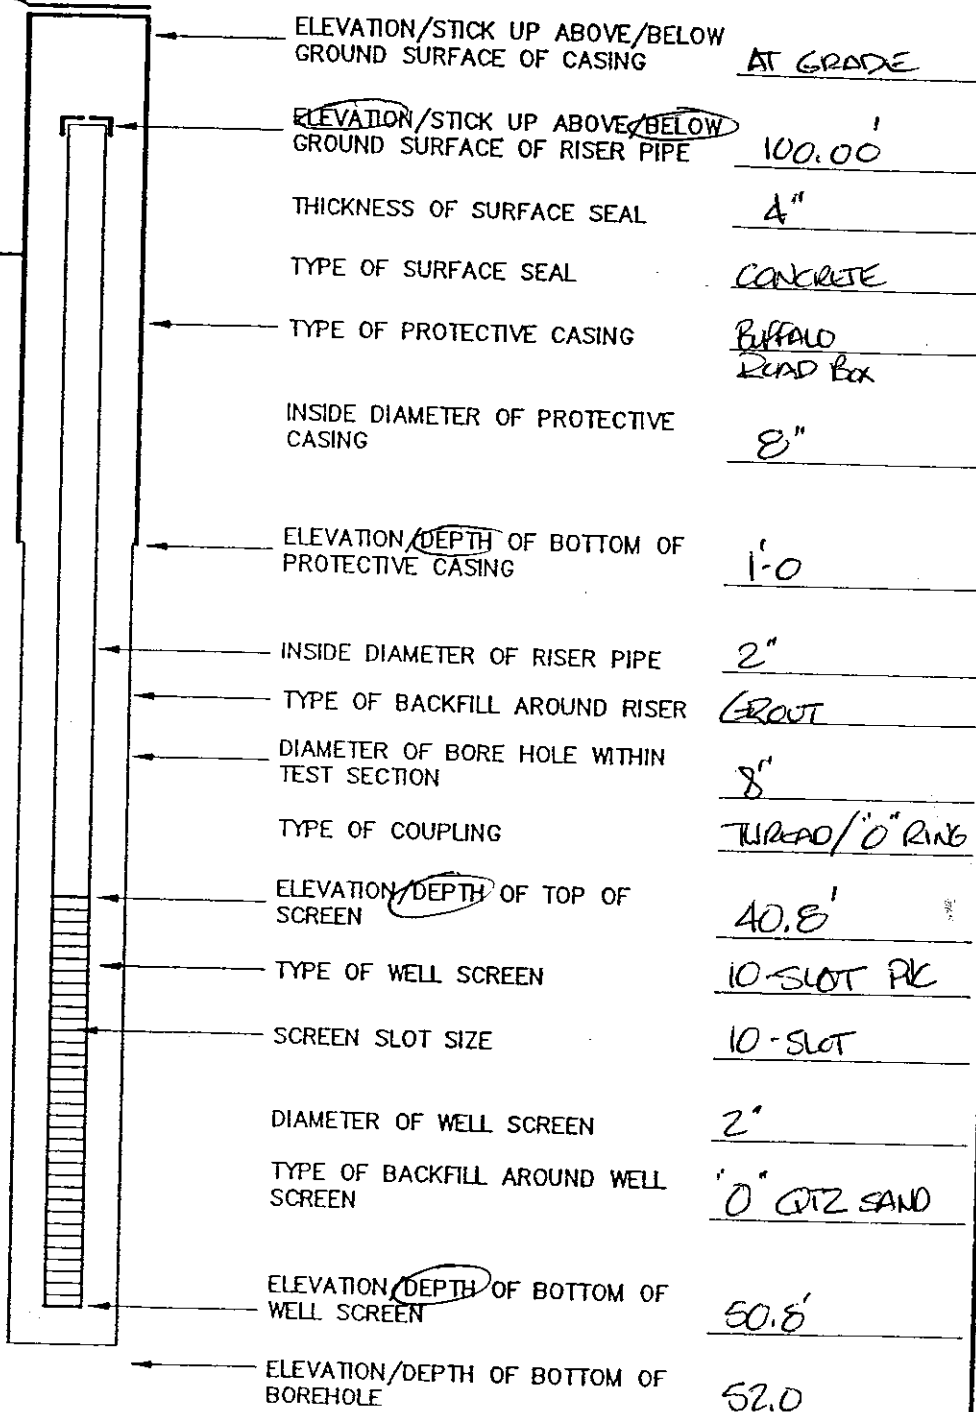 ELEVATION/STICK UP ABOVE/BELOW
GROUND SURFACE OF CASING AT GRADE
ELEVATION/STICK UP ABOVE/BELOW
GROUND SURFACE OF RISER PIPE 100.00'
THICKNESS OF SURFACE SEAL 4"
TYPE OF SURFACE SEAL CONCRETE
TYPE OF PROTECTIVE CASING BUFFALO
ROAD BOX
INSIDE DIAMETER OF PROTECTIVE
CASING 8"
ELEVATION/DEPTH OF BOTTOM OF
PROTECTIVE CASING 1'-0
INSIDE DIAMETER OF RISER PIPE 2"
TYPE OF BACKFILL AROUND RISER GROUT
DIAMETER OF BORE HOLE WITHIN
TEST SECTION 8"
TYPE OF COUPLING THREAD/"O" RING
ELEVATION/DEPTH OF TOP OF
SCREEN 40.8'
TYPE OF WELL SCREEN 10-SLOT PVC
SCREEN SLOT SIZE 10-SLOT
DIAMETER OF WELL SCREEN 2"
TYPE OF BACKFILL AROUND WELL
SCREEN "0" QTZ SAND
ELEVATION/DEPTH OF BOTTOM OF
WELL SCREEN 50.8'
ELEVATION/DEPTH OF BOTTOM OF
BOREHOLE 52.0